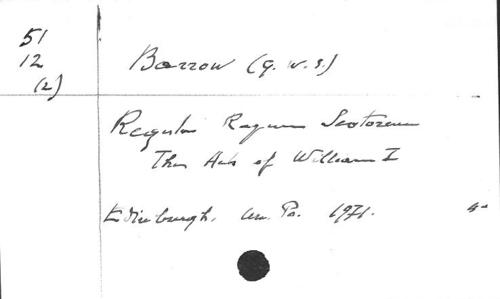 51
12
(2)
Barrow (G. W. S.)
Regesta Regum Scotorum
The Acts of William I
Edinburgh. Un. Pr. 1971. 4°